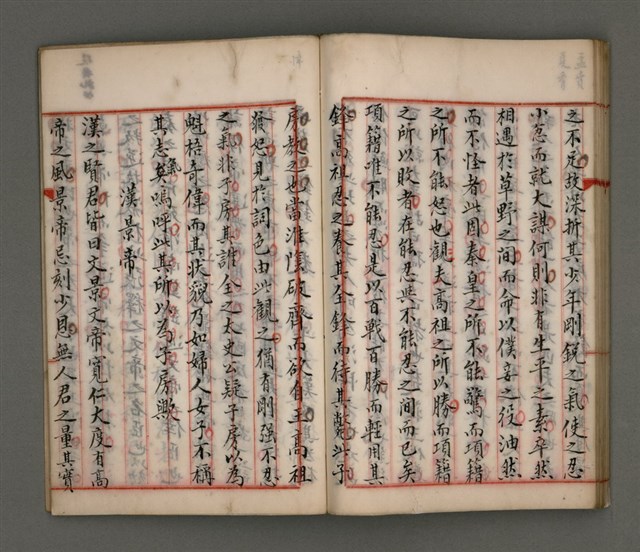 之不足故深折其少年剛銳之氣使之忍
小忿而就大謀何則非有生平之素卒然
相遇於草野之間而命以僕妾之役油然
而不怪者此固秦皇之所不能驚而項籍
之所不能怒也觀夫高祖之所以勝而項籍
之所以敗者在能忍與不能忍之間而已矣
項籍唯不能忍是以百戰百勝而輕用其
鋒高祖忍之養其全鋒而待其斃此子
房教之也當淮陰破齊而欲自王高祖
發怒見於詞色由此觀之猶有剛強不忍
之氣非子房其誰全之太史公疑子房以為
魁梧奇偉而其狀貌乃如婦人女子不稱
其志氣嗚呼此其所以為子房歟
漢景帝
漢之賢君皆曰文景文帝寬仁大度有高
帝之風景帝忌刻少恩無人君之量其實